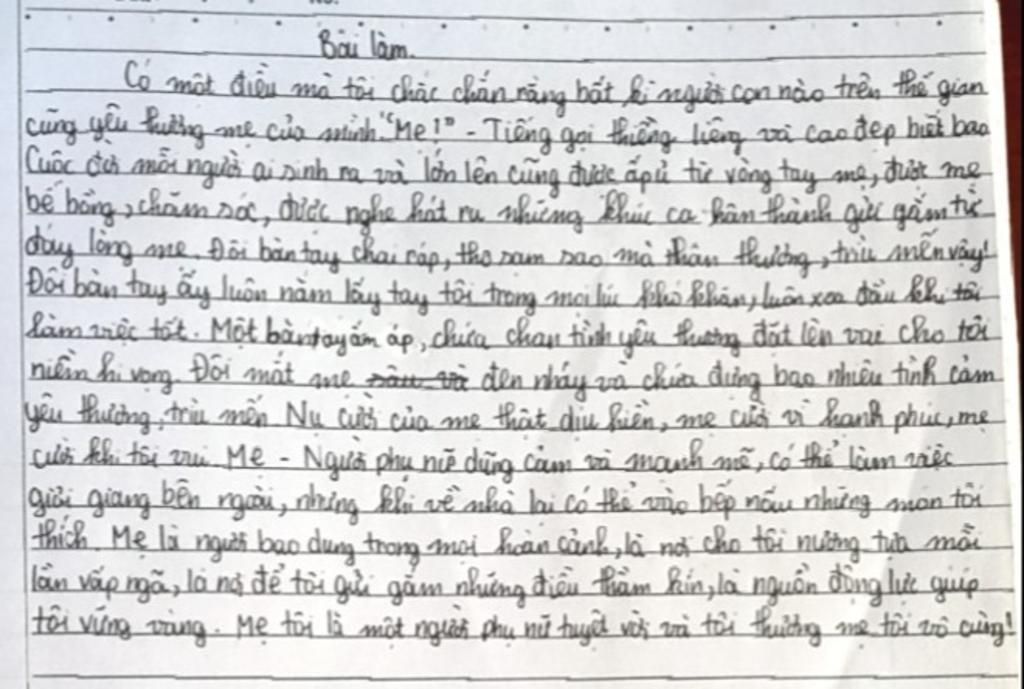 Bài làm.
Có một điều mà tôi chắc chắn rằng bất kì người con nào trên thế gian
cũng yêu thương mẹ của mình "Mẹ!" - Tiếng gọi thiêng liêng và cao đẹp biết bao
Cuộc đời mỗi người ai sinh ra và lớn lên cũng được ấp ủ từ vòng tay mẹ, được mẹ
bế bồng, chăm sóc, được nghe hát ru những khúc ca chân thành gửi gắm từ
đáy lòng mẹ. Đôi bàn tay chai ráp, thô sạm sao mà thân thương, trìu mến vậy!
Đôi bàn tay ấy luôn nắm lấy tay tôi trong mọi lúc khó khăn, luôn xoa đầu khi tôi
làm việc tốt. Một bàn tay ấm áp, chứa chan tình yêu thương đặt lên vai cho tôi
niềm hi vọng. Đôi mắt mẹ đen nháy và chứa đựng bao nhiêu tình cảm
yêu thương, trìu mến. Nụ cười của mẹ thật dịu hiền, mẹ cười vì hạnh phúc, mẹ
cười khi tôi vui. Mẹ - Người phụ nữ dũng cảm và mạnh mẽ, có thể làm việc
giỏi giang bên ngoài, nhưng khi về nhà lại có thể vào bếp nấu những món tôi
thích. Mẹ là người bao dung trong mọi hoàn cảnh, là nơi cho tôi nương tựa mỗi
lần vấp ngã, là nơi để tôi gửi gắm những điều thầm kín, là nguồn động lực giúp
tôi vững vàng. Mẹ tôi là một người phụ nữ tuyệt vời và tôi thương mẹ tôi vô cùng!